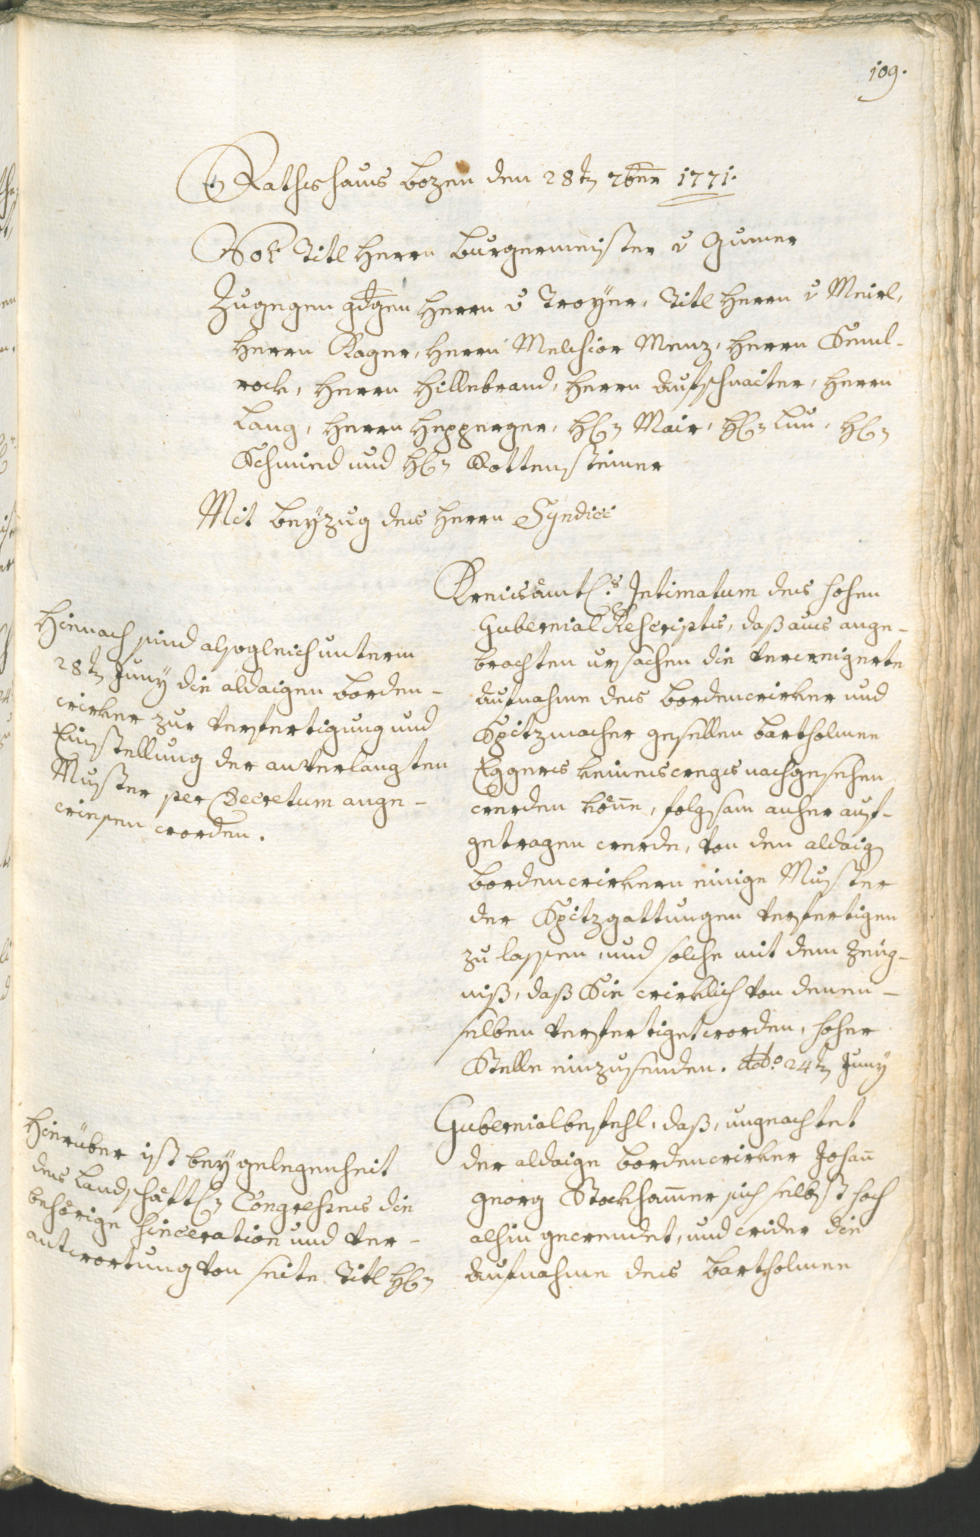 109.
Rathshaus Bozen den 28t. 7ber 1771.
Vor Titl Herrn Burgermeister v Gumer
Zugegen gdgen Herrn v Troyer, Titl Herrn v Meirl,
Herrn Rager, Herrn Melchior Menz, Herrn Seml-
rock, Herrn Hillebrand, Herrn Aufschnaiter, Herrn
Lang, Herrn Hepperger, H. Mair, H. Lun, H.
Schmid und H. Kottensteiner
Mit beyzug des Herrn Syndici
Kreisamtl.s Intimatum des hohen
Gubernial Rescripts, daß aus ange-
brachten ursachen die verweigerte
Aufnahme des Bordenwirker und
Spitzmacher gesellen Bartholmee
Eggers keinesweegs nachgesehen
werden könne, folgsam anher auf-
getragen werde, von den aldaig
Bordenwirkern einige Muster
der Spitzgattungen verfertigen
zu lassen, und solche mit dem zeug-
niß, daß Sie wirklich von denen-
selben verfertiget worden, hoher
Stelle einzusenden. ddo 24t. Juny
Hienach sind alsogleich unterm
28t. Juny die aldaigen Borden-
wirker zur verfertigung und
Einstellung der anverlangten
Muster per Decretum ange-
wiesen worden.
Gubernialbefehl, daß, ungeachtet
der aldaige Bordenwirker Johan
Georg Stockhammer sich selbst hoch
alhin gewendet, und wider die
Aufnahme des Bartholmee
Hierüber ist bey gelegenheit
des Landschäftl. Congresses die
behörige Sinceration und ver-
antwortung von seite Titl H.